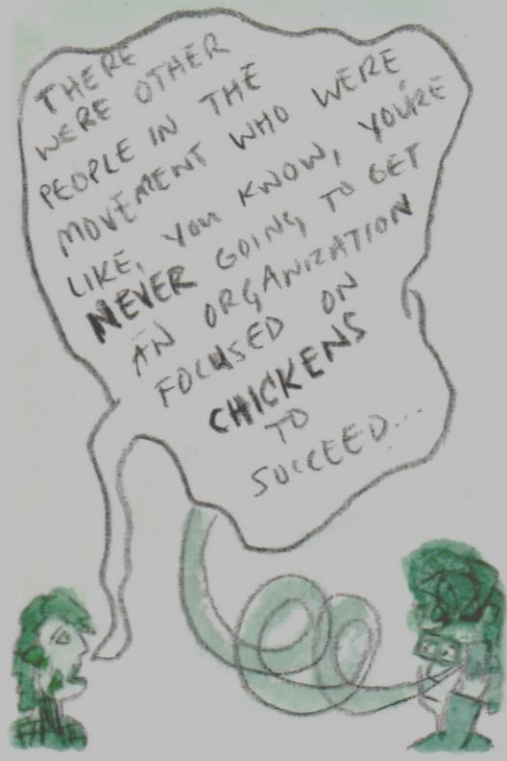 THERE
WERE OTHER
PEOPLE IN THE
MOVEMENT WHO WERE
LIKE, YOU KNOW, YOU'RE
NEVER GOING TO GET
AN ORGANIZATION
FOCUSED ON
CHICKENS
TO
SUCCEED...